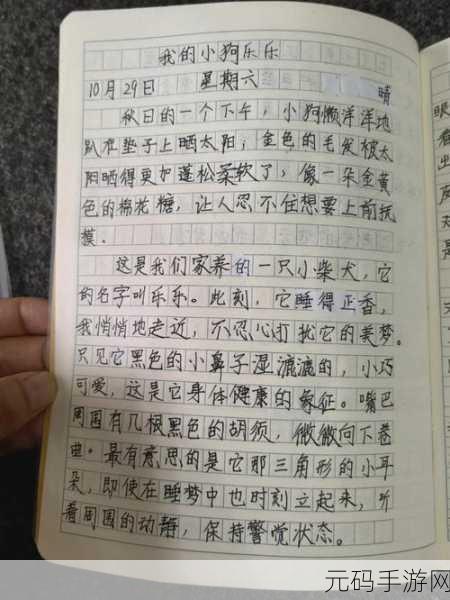 我的小狗乐乐
10月29日 星期六 晴
秋日的一个下午，小狗懒洋洋地
趴在垫子上晒太阳，金色的毛发被太
阳晒得更加蓬松柔软了，像一朵金黄
色的棉花糖，让人忍不住想要上前抚
摸。
这是我们家养的一只小柴犬，它
的名字叫乐乐。此刻，它睡得正香，
我悄悄地走近，不忍心打扰它的美梦。
只见它黑色的小鼻子湿漉漉的，小巧
可爱，这是它身体健康的象征。嘴巴
周围有几根黑色的胡须，微微向下卷
曲。最有意思的是它那三角形的小耳
朵，即使在睡梦中也时刻立起来，听
着周围的动静，保持警觉状态。
眼
看
出
元码手游网